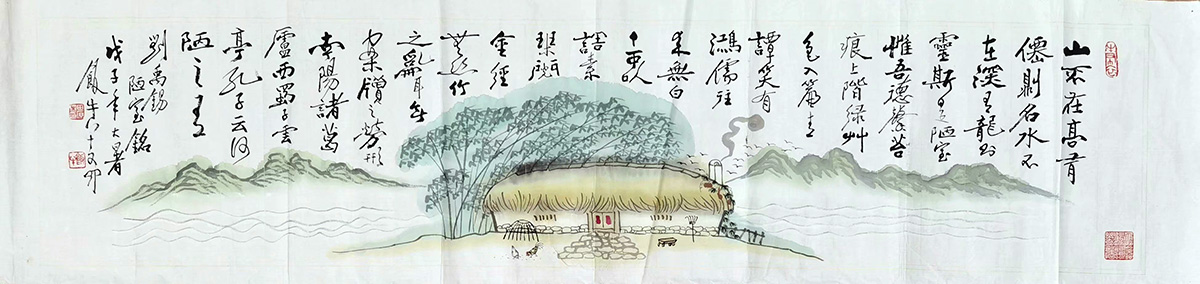 山不在高有
僊則名水不
在深有龍則
靈斯是陋室
惟吾德馨苔
痕上階緑艸
色入簾青
譚笑有
鴻儒往
來無白
丁可以
調素
琴閱
金經
無絲竹
之亂耳無
案牘之勞形
南陽諸葛
廬西蜀子雲
亭孔子云何
陋之有
劉禹錫
陋室銘
戊子年大暑
牛八十又